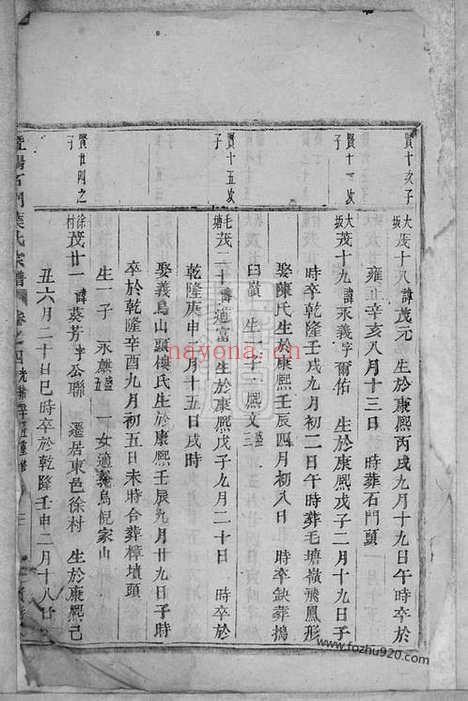 賢十次子
大坂
茂十八諱茂元 生於康熙丙戌九月十九日午時卒於
雍正辛亥八月十三日 時葬石門頭
賢十一次子
大坂
茂十九諱永義字爾佑 生於康熙戊子二月十九日子
時卒乾隆壬戌九月初二日午時葬毛塘嶺飛鳳形
娶陳氏生於康熙壬辰四月初八日 時卒缺葬搗
臼嶺 生一子 熙文
賢十五次子
毛塘
茂二十諱適富 生於康熙戊子九月二十日 時卒於
乾隆庚申 月十五日戌時
娶義烏山頭樓氏生於康熙壬辰九月廿九日子時
卒於乾隆辛酉九月初五日未時合葬樟墳頭
生一子 永 一女適義烏倪家山
賢廿則之子
徐村
茂廿一諱葵芳字公聯 遷居東邑徐村 生於康熙己
丑六月二十日巳時卒於乾隆壬申二月十八日
暨陽石門葉氏宗譜 卷之四
nayona.cn
www.fozhu920.com